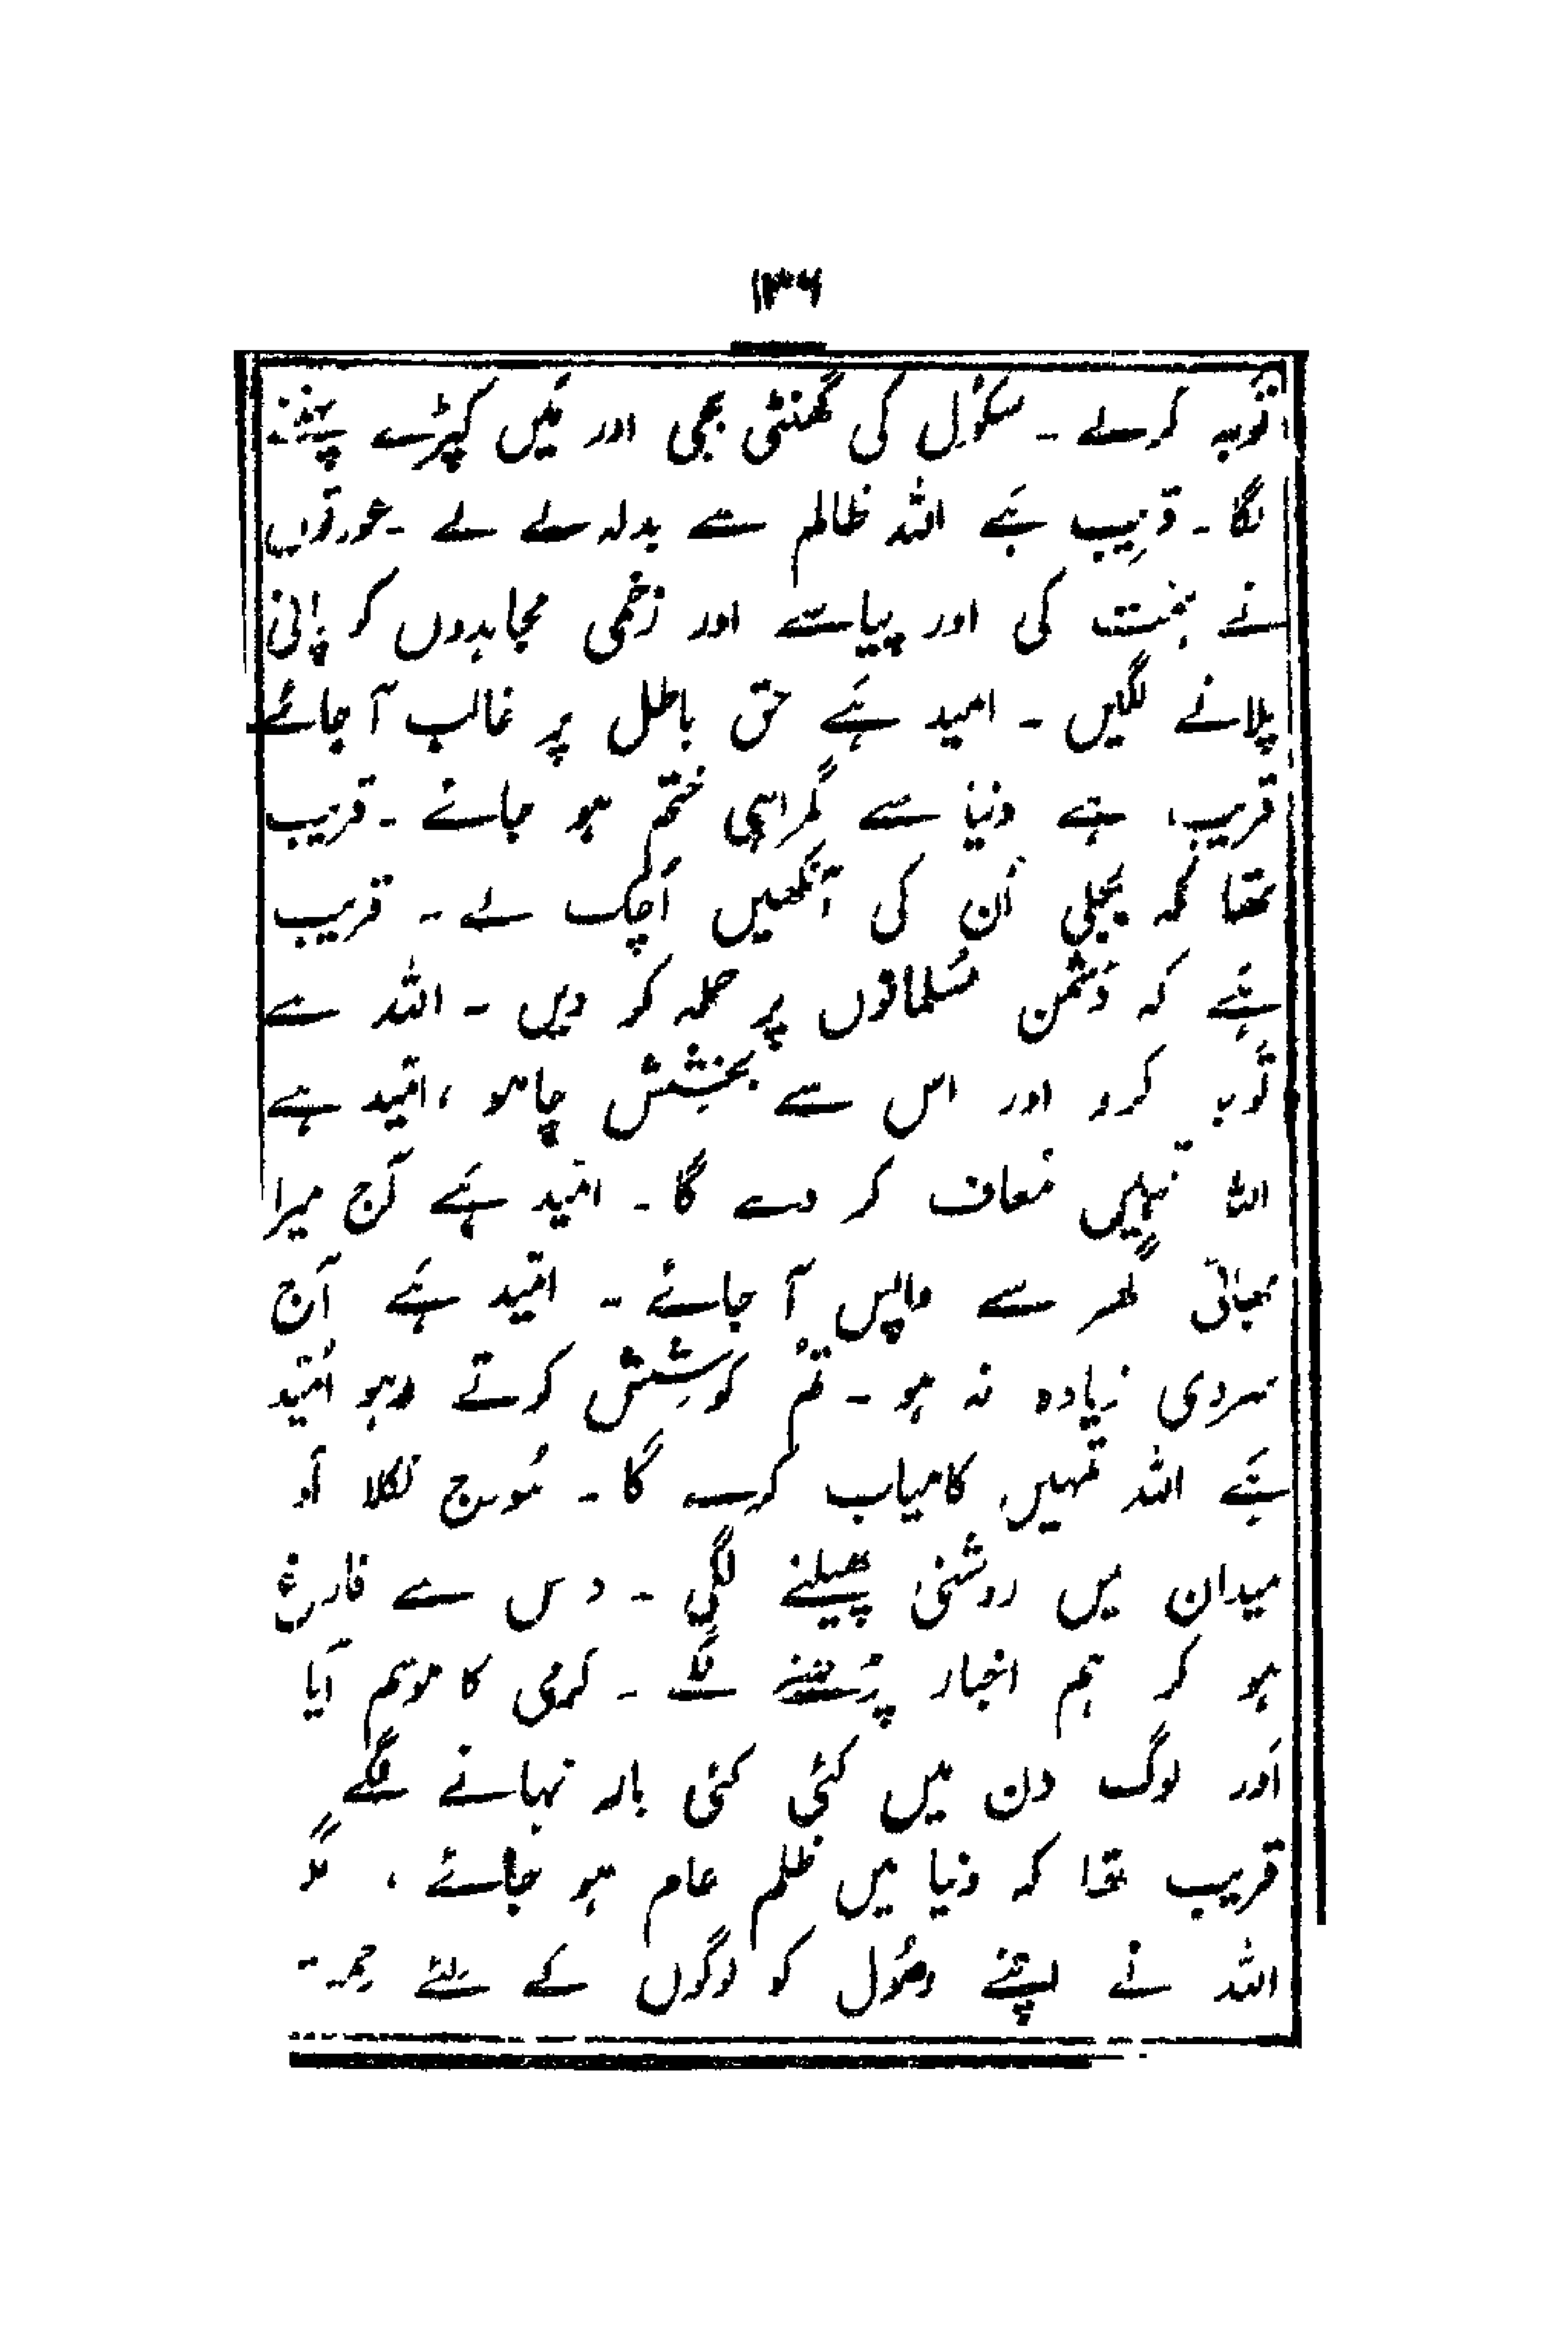 ۱۳۶
توبہ کرلے ۔ سکوُل کی گھنٹی بجی اور مَیں کپڑے پہننے
لگا ۔ قرِیب ہَے اللہ ظالم سے بدلہ لے لے ۔ عورتوں
نے ہمت کی اور پیاسے اور زخمی مجاہدوں کو پانی
پلانے لگیں ۔ امید ہَے حق باطل پر غالب آ جائے
قریب ہے دنیا سے گمراہی ختم ہو جائے ۔ قریب
تھا کہ بجلی اُن کی آنکھیں اُچک لے ۔ قریب
ہَے کہ دُشمن مسُلمانوں پر حملہ کر دیں ۔ اللہ سے
توبہ کرو اور اس سے بخشِش چاہو ، امّید ہے
اللہ تمہیں مُعاف کر دے گا ۔ امّید ہَے آج میرا
بھائی گھر سے واپس آ جائے ۔ امّید ہَے آج
سردی زیادہ نہ ہو ۔ تُم کوشِش کرتے رہو اُمّید
ہَے اللہ تمہیں کامیاب کرے گا ۔ سُورج نکلا اَو
میدان میں روشنی پھیلنے لگی ۔ د س سے فارغ
ہو کر ہم اخبار پڑُھنے لگے ۔ گرمی کا موسم آیا
اَور لوگ دن میں کئی کئی بار نہانے لگے
قریب تھا کہ دنیا میں ظلم عام ہو جائے ، مگر
اللہ نے اپنے رسُول کو لوگوں کے لئے رحمت